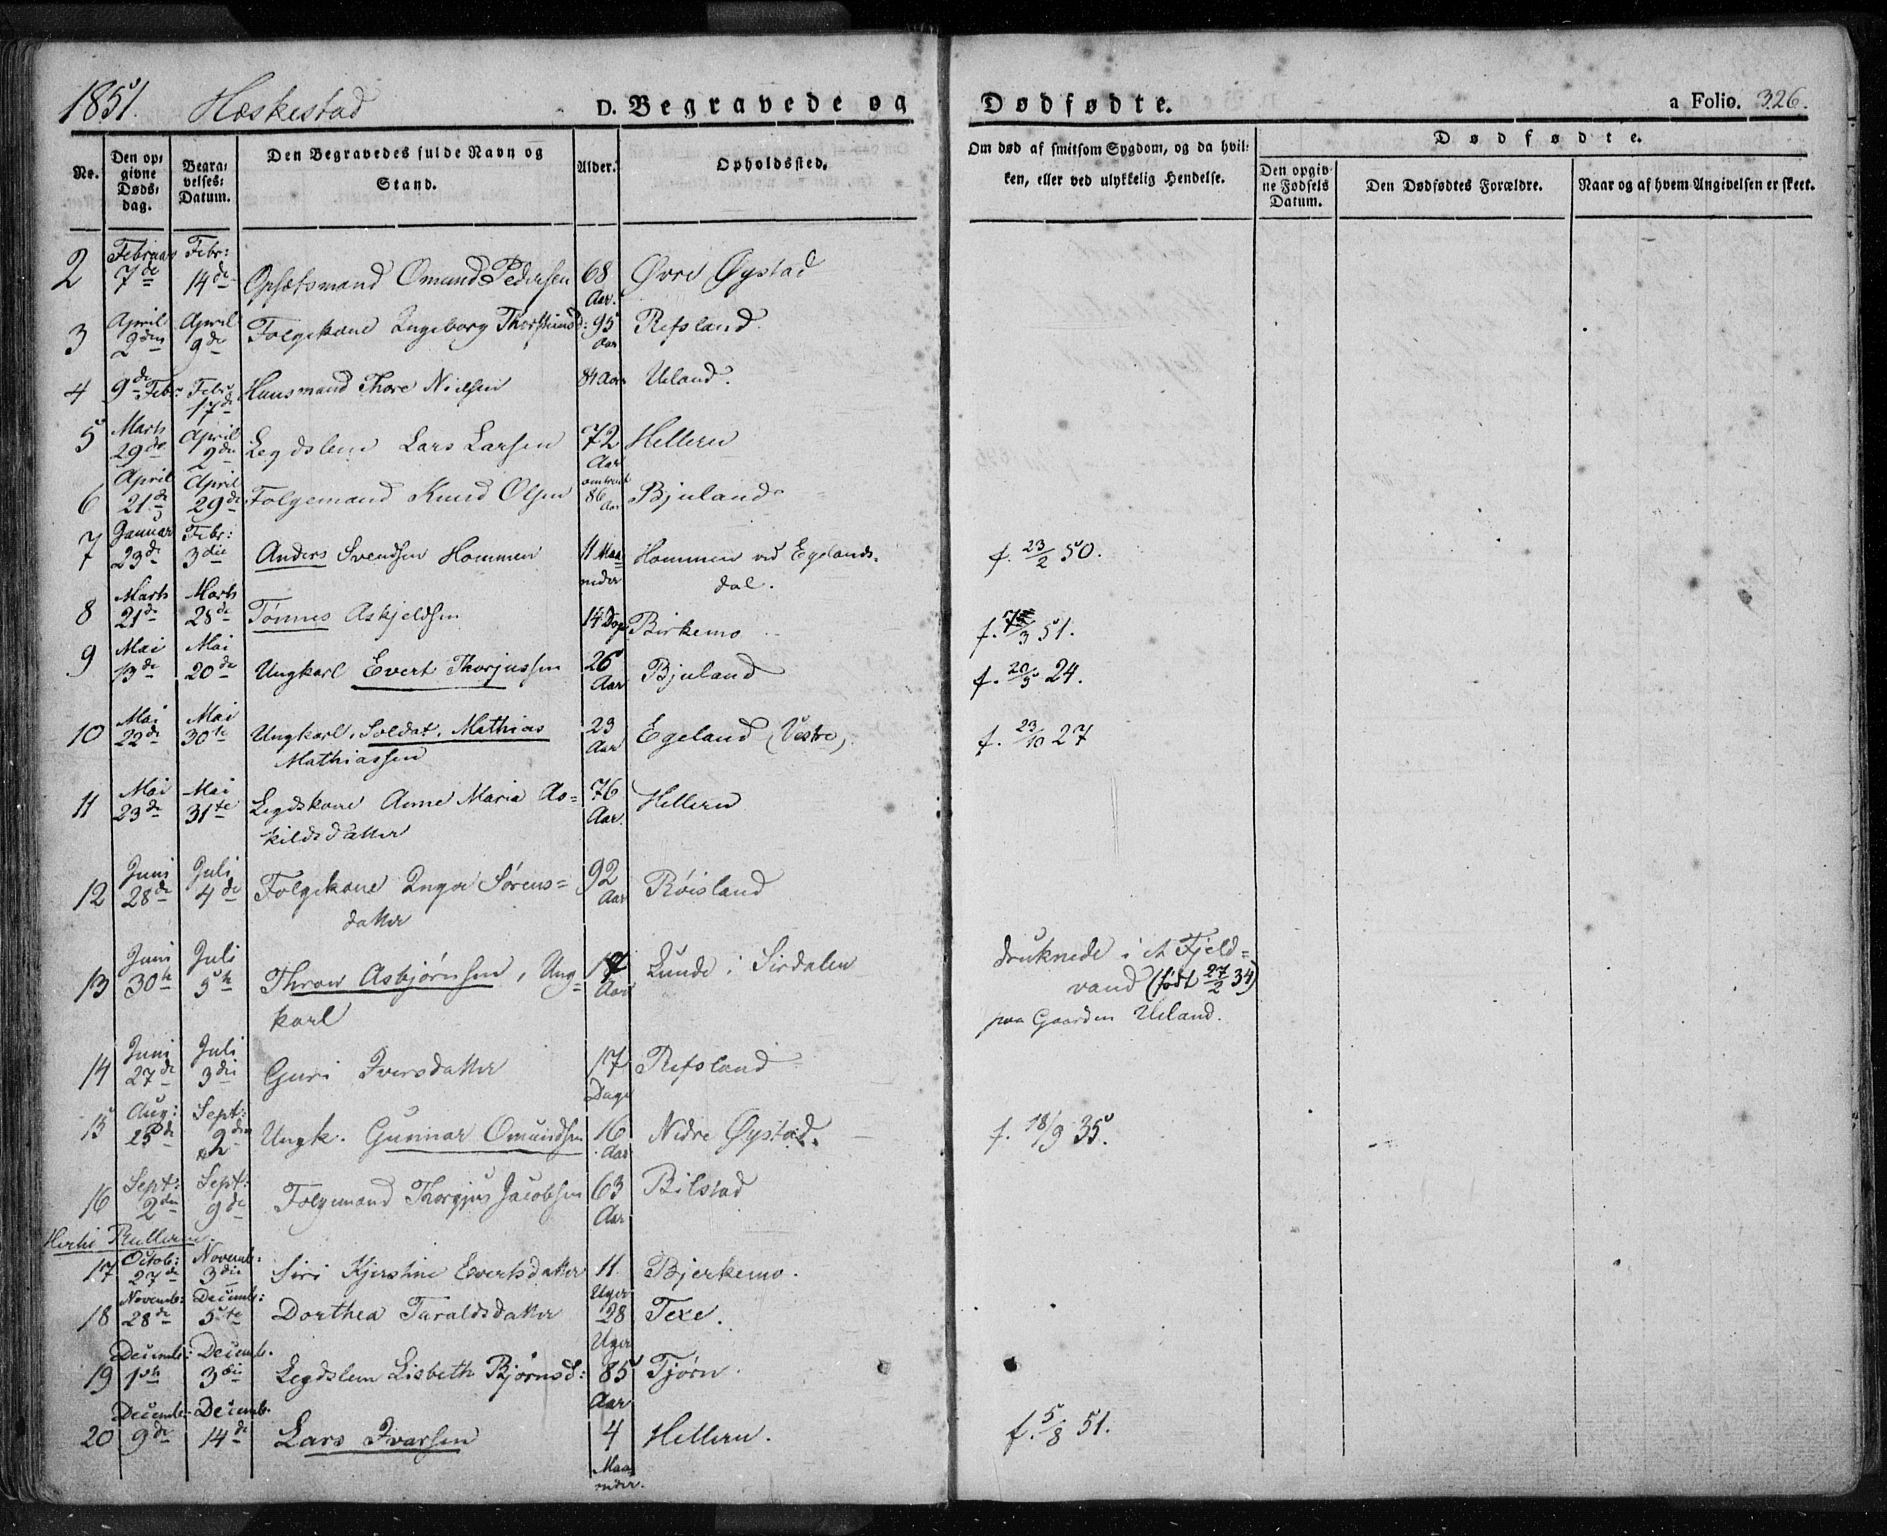 1851. Heskestad D. Begravede og Dødfødte. a Folio. 326.
No. Den opgivne Dødsdag. Begravelses-Datum. Den Begravedes fulde Navn og Stand. Alder. Opholdssted. Om død af smitsom Sygdom, og da hvilken, eller ved ulykkelig Hendelse. Dødfødte.
Den opgivne Fødsels Datum. Den Dødfødtes Forældre. Naar og af hvem Angivelsen er skeet.
2 Februar 7de Febr: 14de Opsetsmand Omund Pedersen 68 Aar. Øvre Øystad
3 April 2den April 9de Folgekone Ingeborg 95 Aar Refsland.
4 9de Febr. Febr. 17de Huusmand Thore Nielsen 84 Aar Ueland.
5 Marts 29de April 2de Legdslem Lars Larsen 72 Aar Hellern
6 April 21de April 29de Folgemand Knud Olsen omtrent 86 Aar Bjuland
7 Januar 23de Febr: 3die Anders Svendsen Hommen 11 Maaneder Hommen ved Egelands-
dal. f. 23/2 50.
8 Marts 21de Marts 28de Tønnes Askjeldsen 14 Dage Birkemo f. /3 51.
9 Mai 13de Mai 20de Ungkarl Evert Thorjussen 26 Aar Bjuland f. 20/5 24.
10 Mai 22de Mai 30te Ungkarl, Soldat, Mathias
Mathiassen 23 Aar Egeland (Vestre) f. 23/10 27
11 Mai 23de Mai 31te Legdskone Anne Maria As=
kildsdatter 76 Aar. Hellern
12 Juni 28de Juli 4de Folgekone Inger Sørens=
datter 92 Aar Røisland
13 Juni 30te Juli 5te Thrond Asbjørnsen, Ung=
karl 17 Aar Lunde i Sirdalen druknede i et Fjeld=
vand (født 27/2 34)
paa Gaarden Ueland.
14 Juni 27de Juli 3die Guri Iversdatter 17 Dage Refsland
15 Aug: 25de Sept: 2den Ungk. Gunnar Omundsen 16 Aar Nedre Øystad. f. 18/9 35.
16 Sept: 2den Sept: 9de Folgemand Thorgjus Jacobsen 63 Aar Bilstad
17 Octob: 27de Novemb: 3die Siri Kjerstine Evertsdatter 11 Uger Bjerkemo.
18 Novemb: 28de Decemb: 5te Dorthea Taraldsdatter 28 Uger Texe.
19 Decemb: 1ste Decemb. 3die Legdslem Lisbeth Bjørnsd: 85 Aar Tjørn.
20 Decemb: 9de Decemb. 14de Lars Ivarsen 4 Maaneder. Hellern. f. 5/8 51.